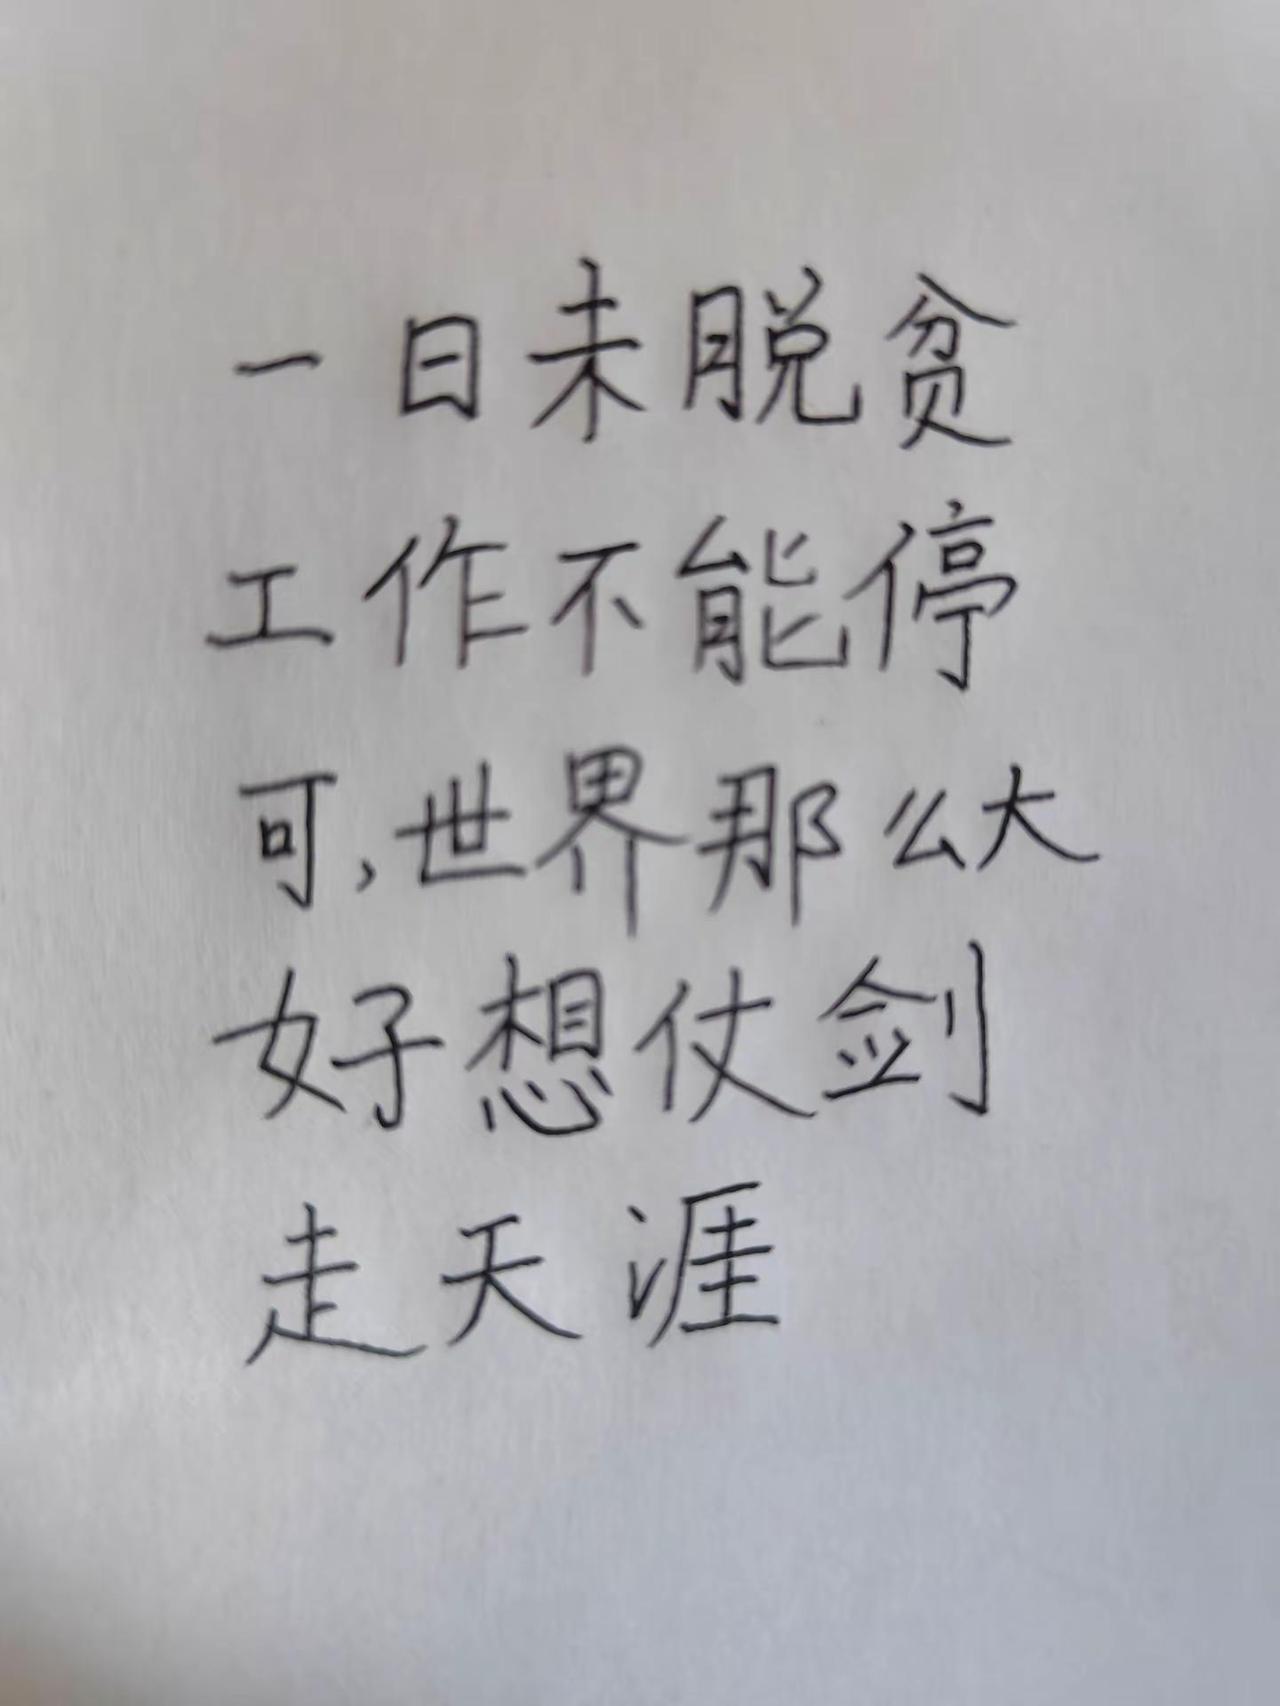 一日未脱贫
工作不能停
可,世界那么大
好想仗剑
走天涯